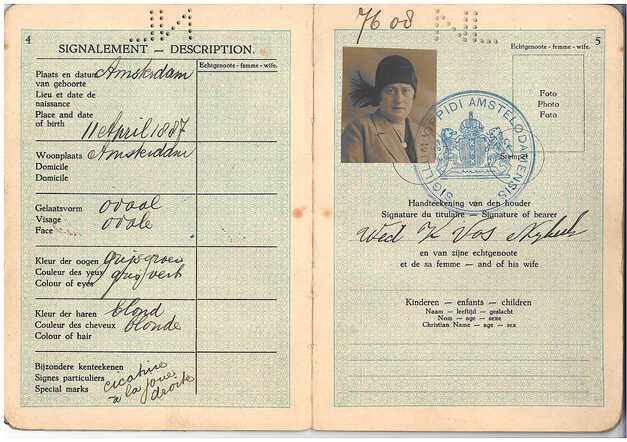 4
SIGNALEMENT — DESCRIPTION.
Echtgenoote - femme - wife.
Plaats en datum Amsterdam
van geboorte
Lieu et date de
naissance
Place and date
of birth 11 April 1887
Woonplaats Amsterdam
Domicile
Domicile
Gelaatsvorm ovaal
Visage ovale
Face
Kleur der oogen grijsgroen
Couleur des yeux gris/vert
Colour of eyes
Kleur der haren blond
Couleur des cheveux blonde
Colour of hair
Bijzondere kenteekenen
Signes particuliers cicatrice
Special marks à la joue
droite
7608
NL
5
Echtgenoote - femme - wife.
Foto
Photo
Foto
Stempel
SIGILLUM OPPIDI AMSTELODAMENSIS
Handteekening van den houder
Signature du titulaire — Signature of bearer
Wed K Vos
en van zijne echtgenoote
et de sa femme — and of his wife
Kinderen — enfants — children
Naam — leeftijd — geslacht
Nom — age — sexe
Christian Name — age — sex